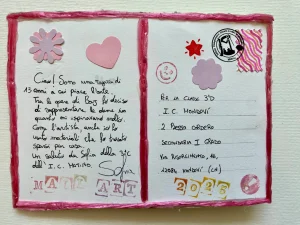 Ciao! Sono una ragazza di
13 anni a cui piace l'arte.
Tra le opere di Baj ho deciso
di rappresentare la dama in
quanto mi ispirava molto.
Come l'artista, anche io ho
usato materiali che ho trovato
sparsi per casa.
Un saluto da Sofia della 3°C
dell' I.C.
Sofia
MAIL ART
PER LA CLASSE 3°D
I.C. MONDOVÌ
2 BESSO ORDERO
SECONDARIA I GRADO
VIA RISORGIMENTO, 14,
12084 MONDOVÌ (CN)
2026